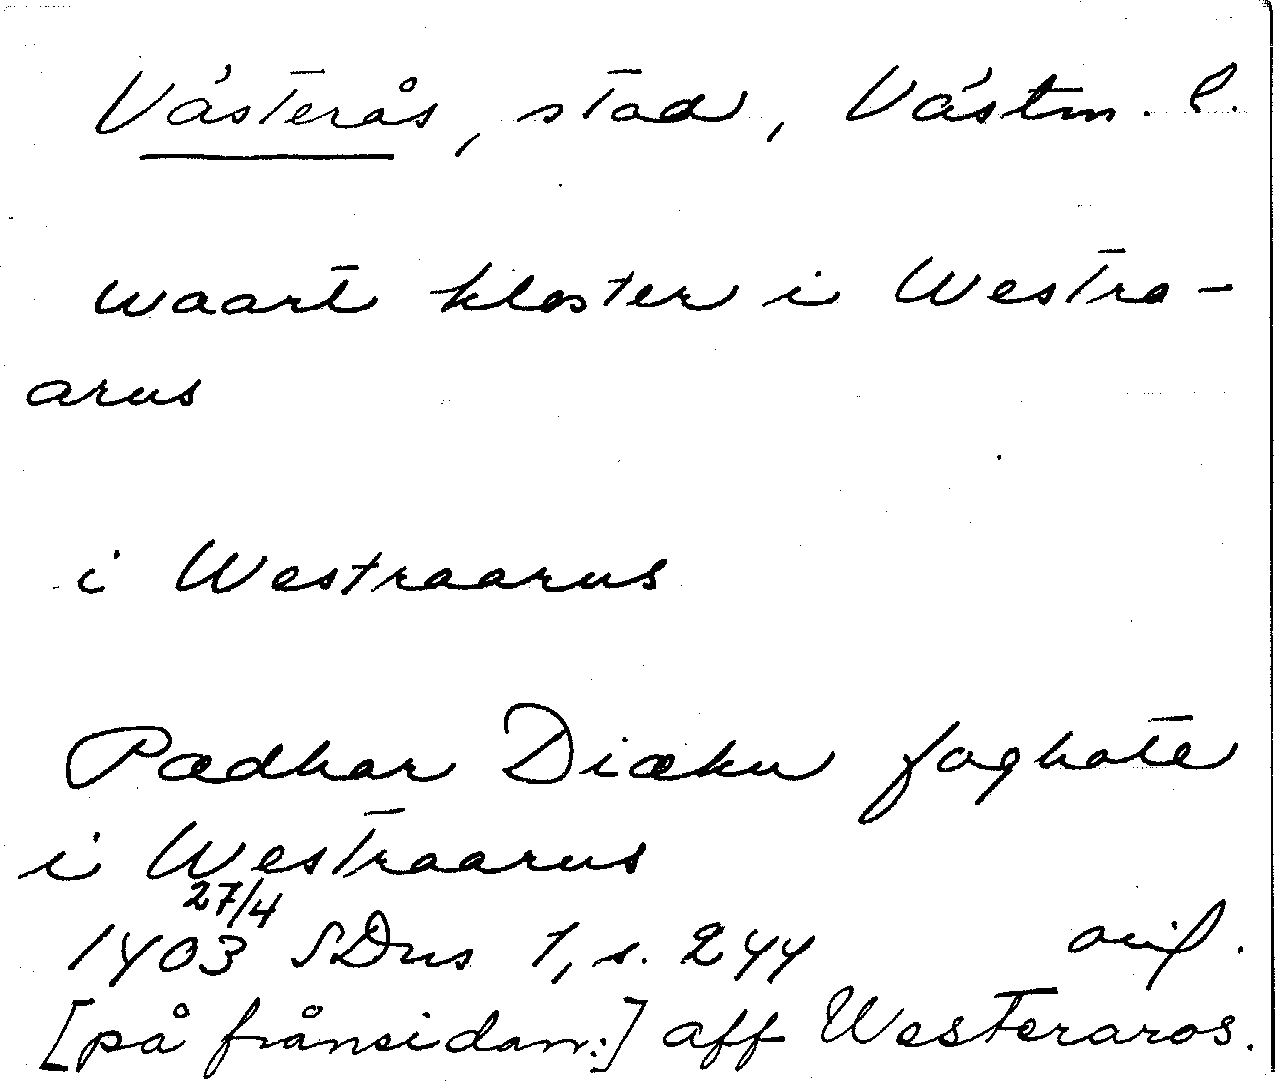 Västerås, stad, Västm. l.
waart kloster i Westra-
arus
i Westraarus
Pædhar Diækn foghate
i Westraarus
27/4
1403 SDns 1, s. 244 orig.
[på frånsidan:] aff Westeraros.